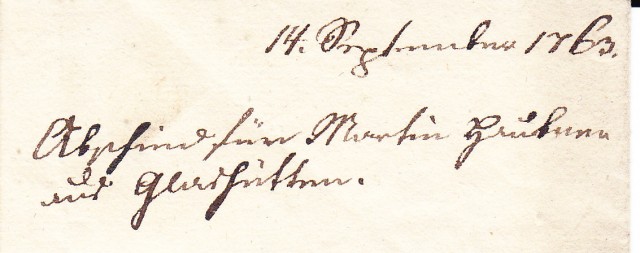 14. September 1763.
Abschied für Martin Haubner
aus Glashütten.